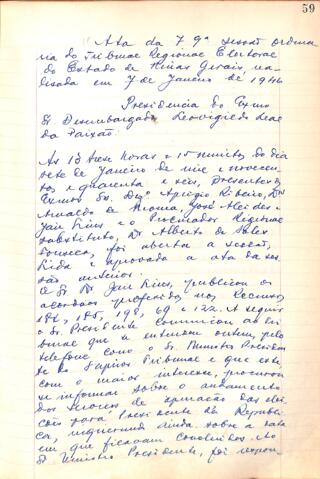 59
"Ata da 79ª sessão ordina
ria do Tribunal Regional Eleitoral
do Estado de Minas Gerais, rea-
lisada em 7 de Janeiro de 1946
Presidencia do Exmo
Sr. Desembargador Leovigildo Leal
da Paixão.
As 13 treze horas e 15 minutos do dia
sete de Janeiro de mil e novecen-
tos e quarenta e seis, presentes os
Exmos Srs. Desº Aprigio Ribeiro, Drs
Amilcar de Moura, José Alcides
Jair Lins e o Procurador Regional
substituto, Dr Alberto de Sales
Fonseca, foi aberta a sessão,
lida e aprovada a ata da ses
são anterior.
O Sr. Dr. Jair Lins, publicou os
acordãos proferidos nos Recursos
186, 185, 198, 69 e 122. A seguir
o Sr. Presidente comunicou ao Tri
bunal que se entendeu ontem, pelo
telefone com o Sr. Ministro Presidente
do Superior Tribunal e que este
com o maior interesse, procurou
se informar sobre o andamento
dos serviços de apuração das elei
ções para Presidente da Republi
ca, inquerindo ainda sobre a data
em que ficariam concluidos. Ao
Sr. Ministro Presidente, foi respon